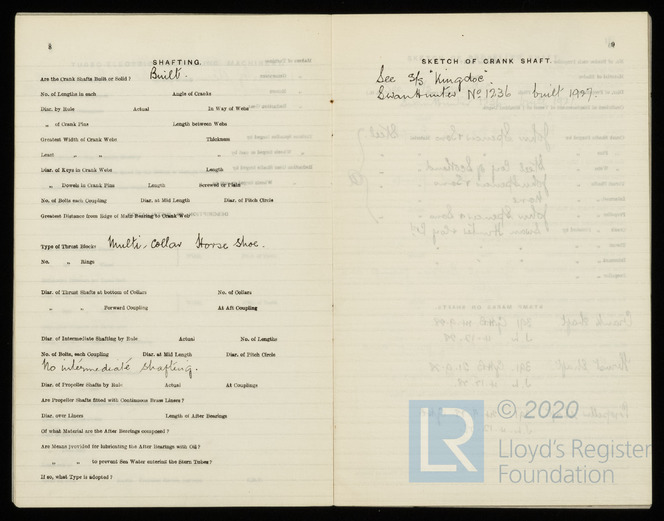 8
SHAFTING.
Are the Crank Shafts Built or Solid? Built.
No. of Lengths in each Angle of Cranks
Diar. by Rule Actual In Way of Webs
„ of Crank Pins Length between Webs
Greatest Width of Crank Webs Thickness
Least „ „ „
Diar. of Keys in Crank Webs Length
„ Dowels in Crank Pins Length Screwed or Plain
No. of Bolts each Coupling Diar. at Mid Length Diar. of Pitch Circle
Greatest Distance from Edge of Main Bearing to Crank Web
Type of Thrust Blocks Multi-Collar Horse Shoe.
No. „ Rings
Diar. of Thrust Shafts at bottom of Collars No. of Collars
„ „ Forward Coupling At Aft Coupling
Diar. of Intermediate Shafting by Rule Actual No. of Lengths
No. of Bolts, each Coupling Diar. at Mid Length Diar. of Pitch Circle
No intermediate shafting.
Diar. of Propeller Shafts by Rule Actual At Couplings
Are Propeller Shafts fitted with Continuous Brass Liners?
Diar. over Liners Length of After Bearings
Of what Material are the After Bearings composed?
Are Means provided for lubricating the After Bearings with Oil?
„ „ to prevent Sea Water entering the Stern Tubes?
If so, what Type is adopted?
9
SKETCH OF CRANK SHAFT.
See S/S "Kingdoc".
Swan Hunter No 1236 built 1927.
© 2020
LR
Lloyd's Register
Foundation